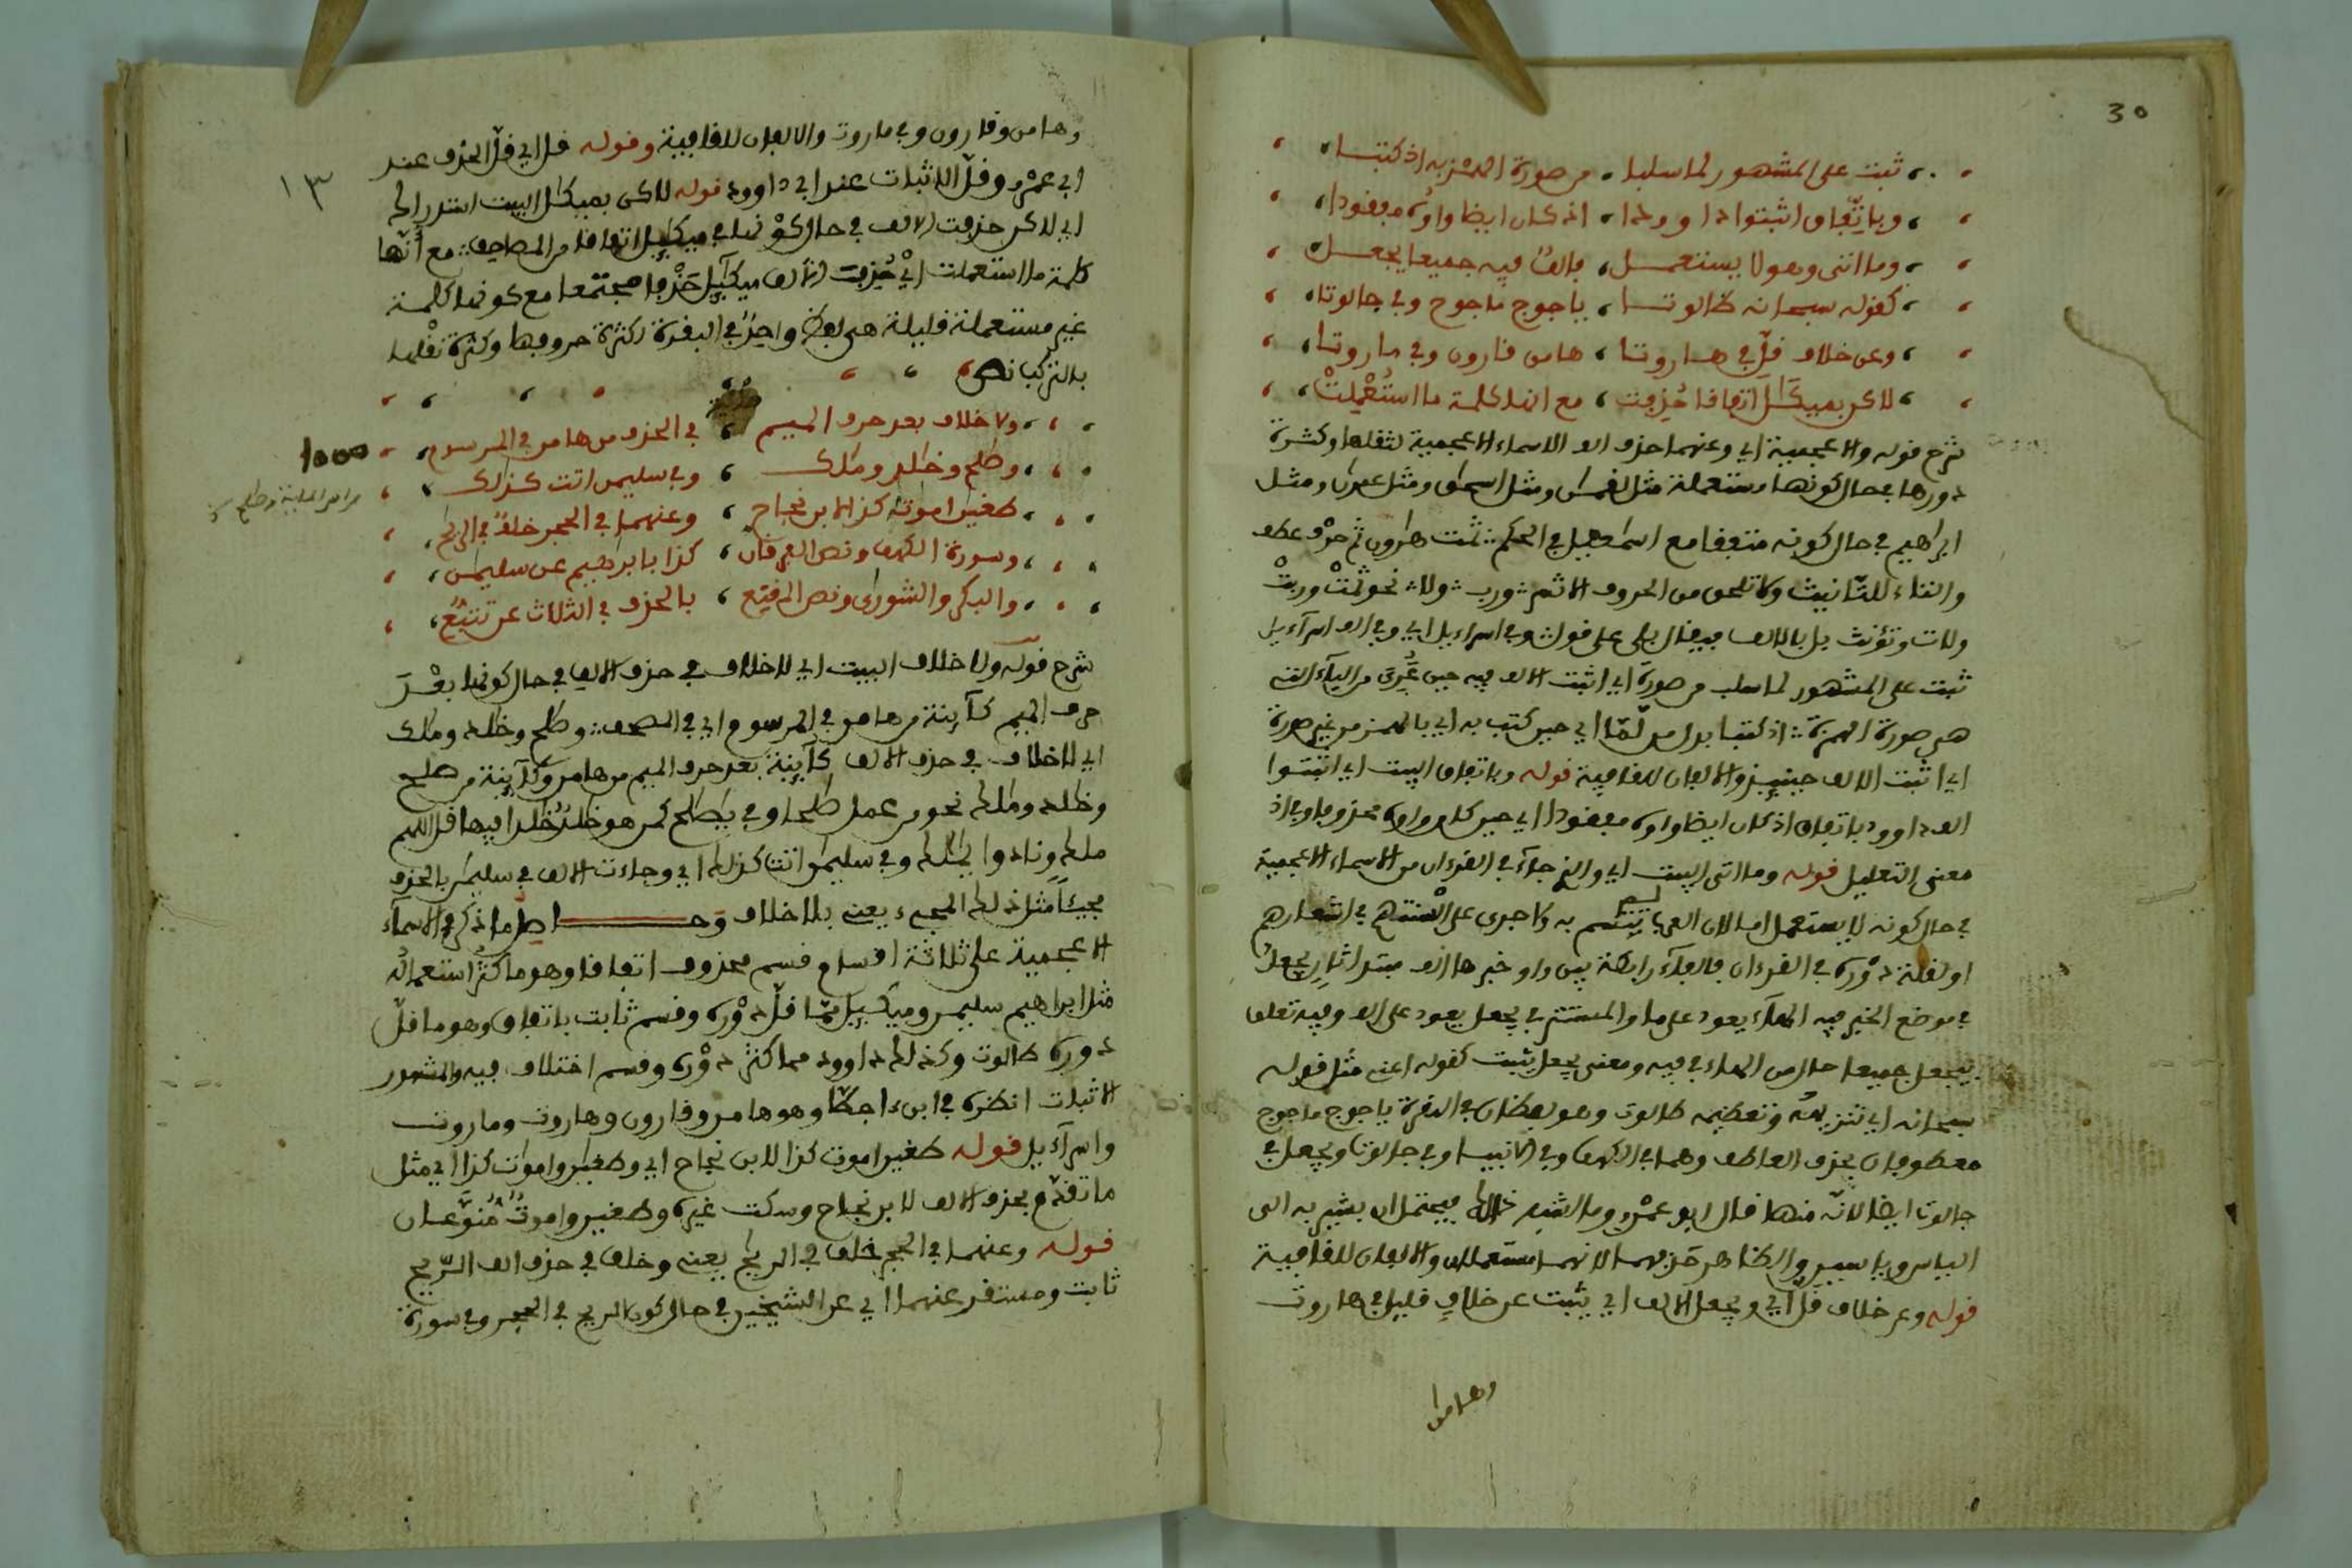 30
ثبت على المشهور لما سلبا من صورة الهمز به اذ كتبا
وباتّفاق اثبتوا داوودا اذ كان ايضا واوُه مفقودا
وما اتى وهو لا يستعمل فالفُ فيه جميعا يجعل
كقوله سبحانه طالوتا ياجوج ماجوج وفي جالوتا
وعن خلاف قلّ في هاروتا هامن قارون وفي ماروتا
لاكن بميكَٰلَ اتفاقا حُذِفت مع انها كلمة ما استُعْمِلتْ
شرح قوله والاعجمية اي وعنهما حذف الف الاسماء الاعجمية لثقلها وكثرة
دورها في حال كونها مستعملة مثل لقمٰن ومثل اسحٰق ومثل عمرٰن ومثل
ابراهيم في حال كونه متفقا مع اسمٰعيل في الحكم ثمت هٰرون ثم حرف عطف
والتاء للتانيث ولا تلحق من الحروف الا ثم ورب ولا نحو ثمتْ وربتْ
ولات وتؤنث بل بالالف فيقال بلى على قول وفي اسراءيل اي وفي الف اسرآءيل
ثبت على المشهور لما سلب من صورة اي اثبت الالف فيه حين عُرِيَ من اليآء التي
هي صورة الهمزة اذ كتبا بدل من لمّا اي حين كتب به اي بالهمز من غير صورة
اي اثبت الالف حينيذ والالفان للقافية قوله وباتفاق البيت اي اثبتوا
الف داوود باتفاق اذ كان ايضا واوه مفقودا اي حين كان واوه محذوفا وفي اذ
معنى التعليل قوله وما اتى البيت اي والذي جآء في القرءان من الاسماء الاعجمية
في حال كونه لا يستعمل اما لان العرب لم يتسم به ولا جرى على السنتهم في اشعارهم
او لقلة دوْره في القرءان فالفآء رابطة بين وما وخبرها الف مبتدا ثان يجعلُ
في موضع الخبر فيه الهآء يعود على ما والمستتر في يجعل يعود على الف وفيه تعلق
بيجعل جميعا حال من الهاء في فيه ومعنى يجعل يثبت كقوله اعني مثل قوله
سبحانه اي تنزيهُه وتعظيمه طالوت وهو لفظان في البقرة ياجوج ماجوج
معطوفان بحذف العاطف وهما في الكهف وفي الانبياء وفي جالوتا ويجعل في
جالوت ايضا لانّه منها قال ابو عمْرٍو وما اشبه ذلك فيحتمل ان يشير به الى
الياس وياسين والظاهر حذفهما لانهما مستعملان والالفان للقافية
قوله وعن خلاف قلّ اي ويجعل الالف اي يثبت عن خلافٍ قليل في هاروت
وهامن
١٣
وهامن وقارون وفي ماروت والالفان للقافية وقوله قل اي قلّ الحذف عند
ابي عمْرٍو وقلّ الاثبات عند ابي داوود قوله لاكن بميكٰل البيت استدراك
اي لاكن حذفت الالف في حال كونها في ميكٰيل اتفاقا من المصاحف مع أنّها
كلمة ما استعملت ايْ حُذِفت الالف ميكٰيل حَذْفا مجتمعا مع كونها كلمة
غير مستعملة قليلة هي لفظ واحدٌ في البقرة لكثرة حروفها وكثرة ثقلها
بالتركيب نص
ولا خلاف بعد حرف الميم في الحذف من هامن في المرسوم
وصٰلح وخٰلد ومٰلك وفي سليمٰن اتت كذلك
طغيٰن اموٰت كذا لابن نجاح وعنهما في الحجر خلفٌ في الريٰح
وسورة الكهف ونص الفرقان كذا بابراهيم عن سليمٰن
والبكر والشورى ونص المقنع بالحذف في الثلاث عن تتبُّع
شرح قوله ولا خلاف البيت اي لا خلاف في حذف الالف في حال كونها بعْدَ
حرف الميم كآينة من هامن في المرسوم اي في المصحف وصٰلح وخٰلد ومٰلك
اي لا خلاف في حذف الالف كآينة بعد حرف الميم من هامن وكآينة من صٰلح
وخٰلد ومٰلك نحو من عمل صٰلحا وفي يٰصٰلح كمن هو خٰلدٌ خٰلدا فيها قل اللهم
مٰلك ونادوا يٰمٰلك وفي سليمٰن اتت كذلك اي وجاءت الالف في سليمٰن بالحذف
مجيئاً مثل ذلك المجيء يعني بلا خلاف وحــــاصل ما ذكر في الاسمآء
الاعجمية على ثلاثة اقسام قسم محذوف اتفاقا وهو ما كثُر استعماله
مثل ابراهيم سليمٰن وميكٰيل ممّا قلّ دوْره وقسم ثابت باتفاق وهو ما قلّ
دوره طالوت وكذلك داوود مما كثر دوْره وقسم اختلاف فيه والمشهور
الاثبات انظره في ابن ءاجطّا وهو هامن وقارون وهاروت وماروت
واسرآءيل قوله طغيٰن اموٰت كذا لابن نجاح اي وطغيٰن واموٰت كذا اي مثل
ما تقدّم بحذف الالف لابن نجاح وسكت غيره وطغيٰن واموٰتٌ مُنوَّعان
قوله وعنهما في الحجر خلف في الريٰح يعني وخلف في حذف الف الرّيٰح
ثابت ومستقر عنهما اي عن الشيخين في حال كون الريٰح في الحجر وفي سورة